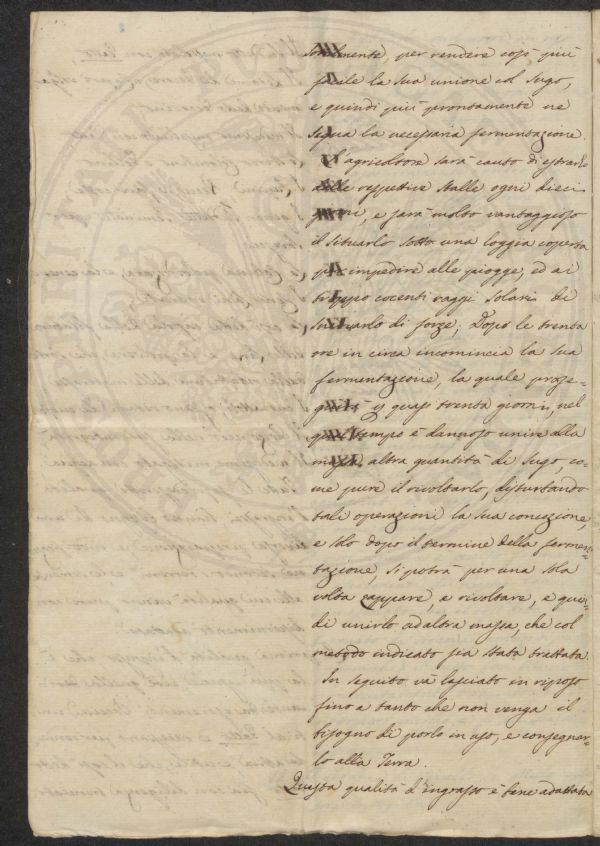 per rendere così più
facile la sua unione col sugo,
e quindi più prontamente ne
segua la necessaria fermentazione.
L'agricoltore sarà cauto di estrarlo
dalle respettive stalle ogni dieci
giorni, e sarà molto vantaggioso
il situarlo sotto una loggia coperta
per impedire alle piogge, ed ai
troppo cocenti raggi solari di
snervarlo di forze; Dopo le trenta
ore in circa incomincia la sua
fermentazione, la quale prose=
guirà p quasi trenta giorni, nel
qual tempo è dannoso unire alla
massa altra quantità di sugo, co=
me pure il rivoltarlo, disturbando
tali operazioni la sua concozione,
e solo dopo il termine della fermen=
tazione, si potrà per una sola
volta zappare, e rivoltare, e quin=
di unirlo ad altra massa, che col
metodo indicato sia stata trattata.
In seguito và lasciato in riposo
fino a tanto che non venga il
bisogno di porlo in uso, e consegnar=
lo alla Terra.
Questa qualità d'ingrasso è bene adattata